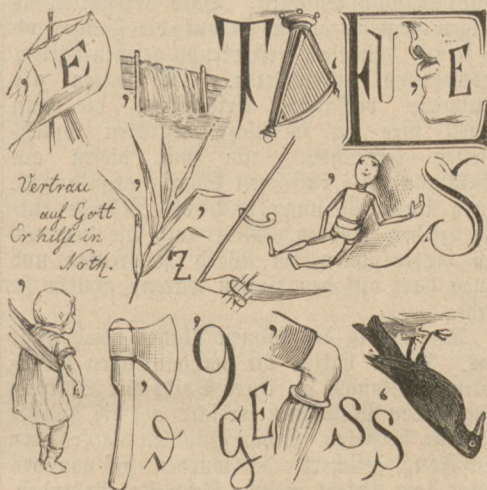 , E , T ' E U , E
Vertrau
auf Gott
Er hilft in
Noth.
' ' 'Z ' ' S
' ' d '9 ' GE S'S '